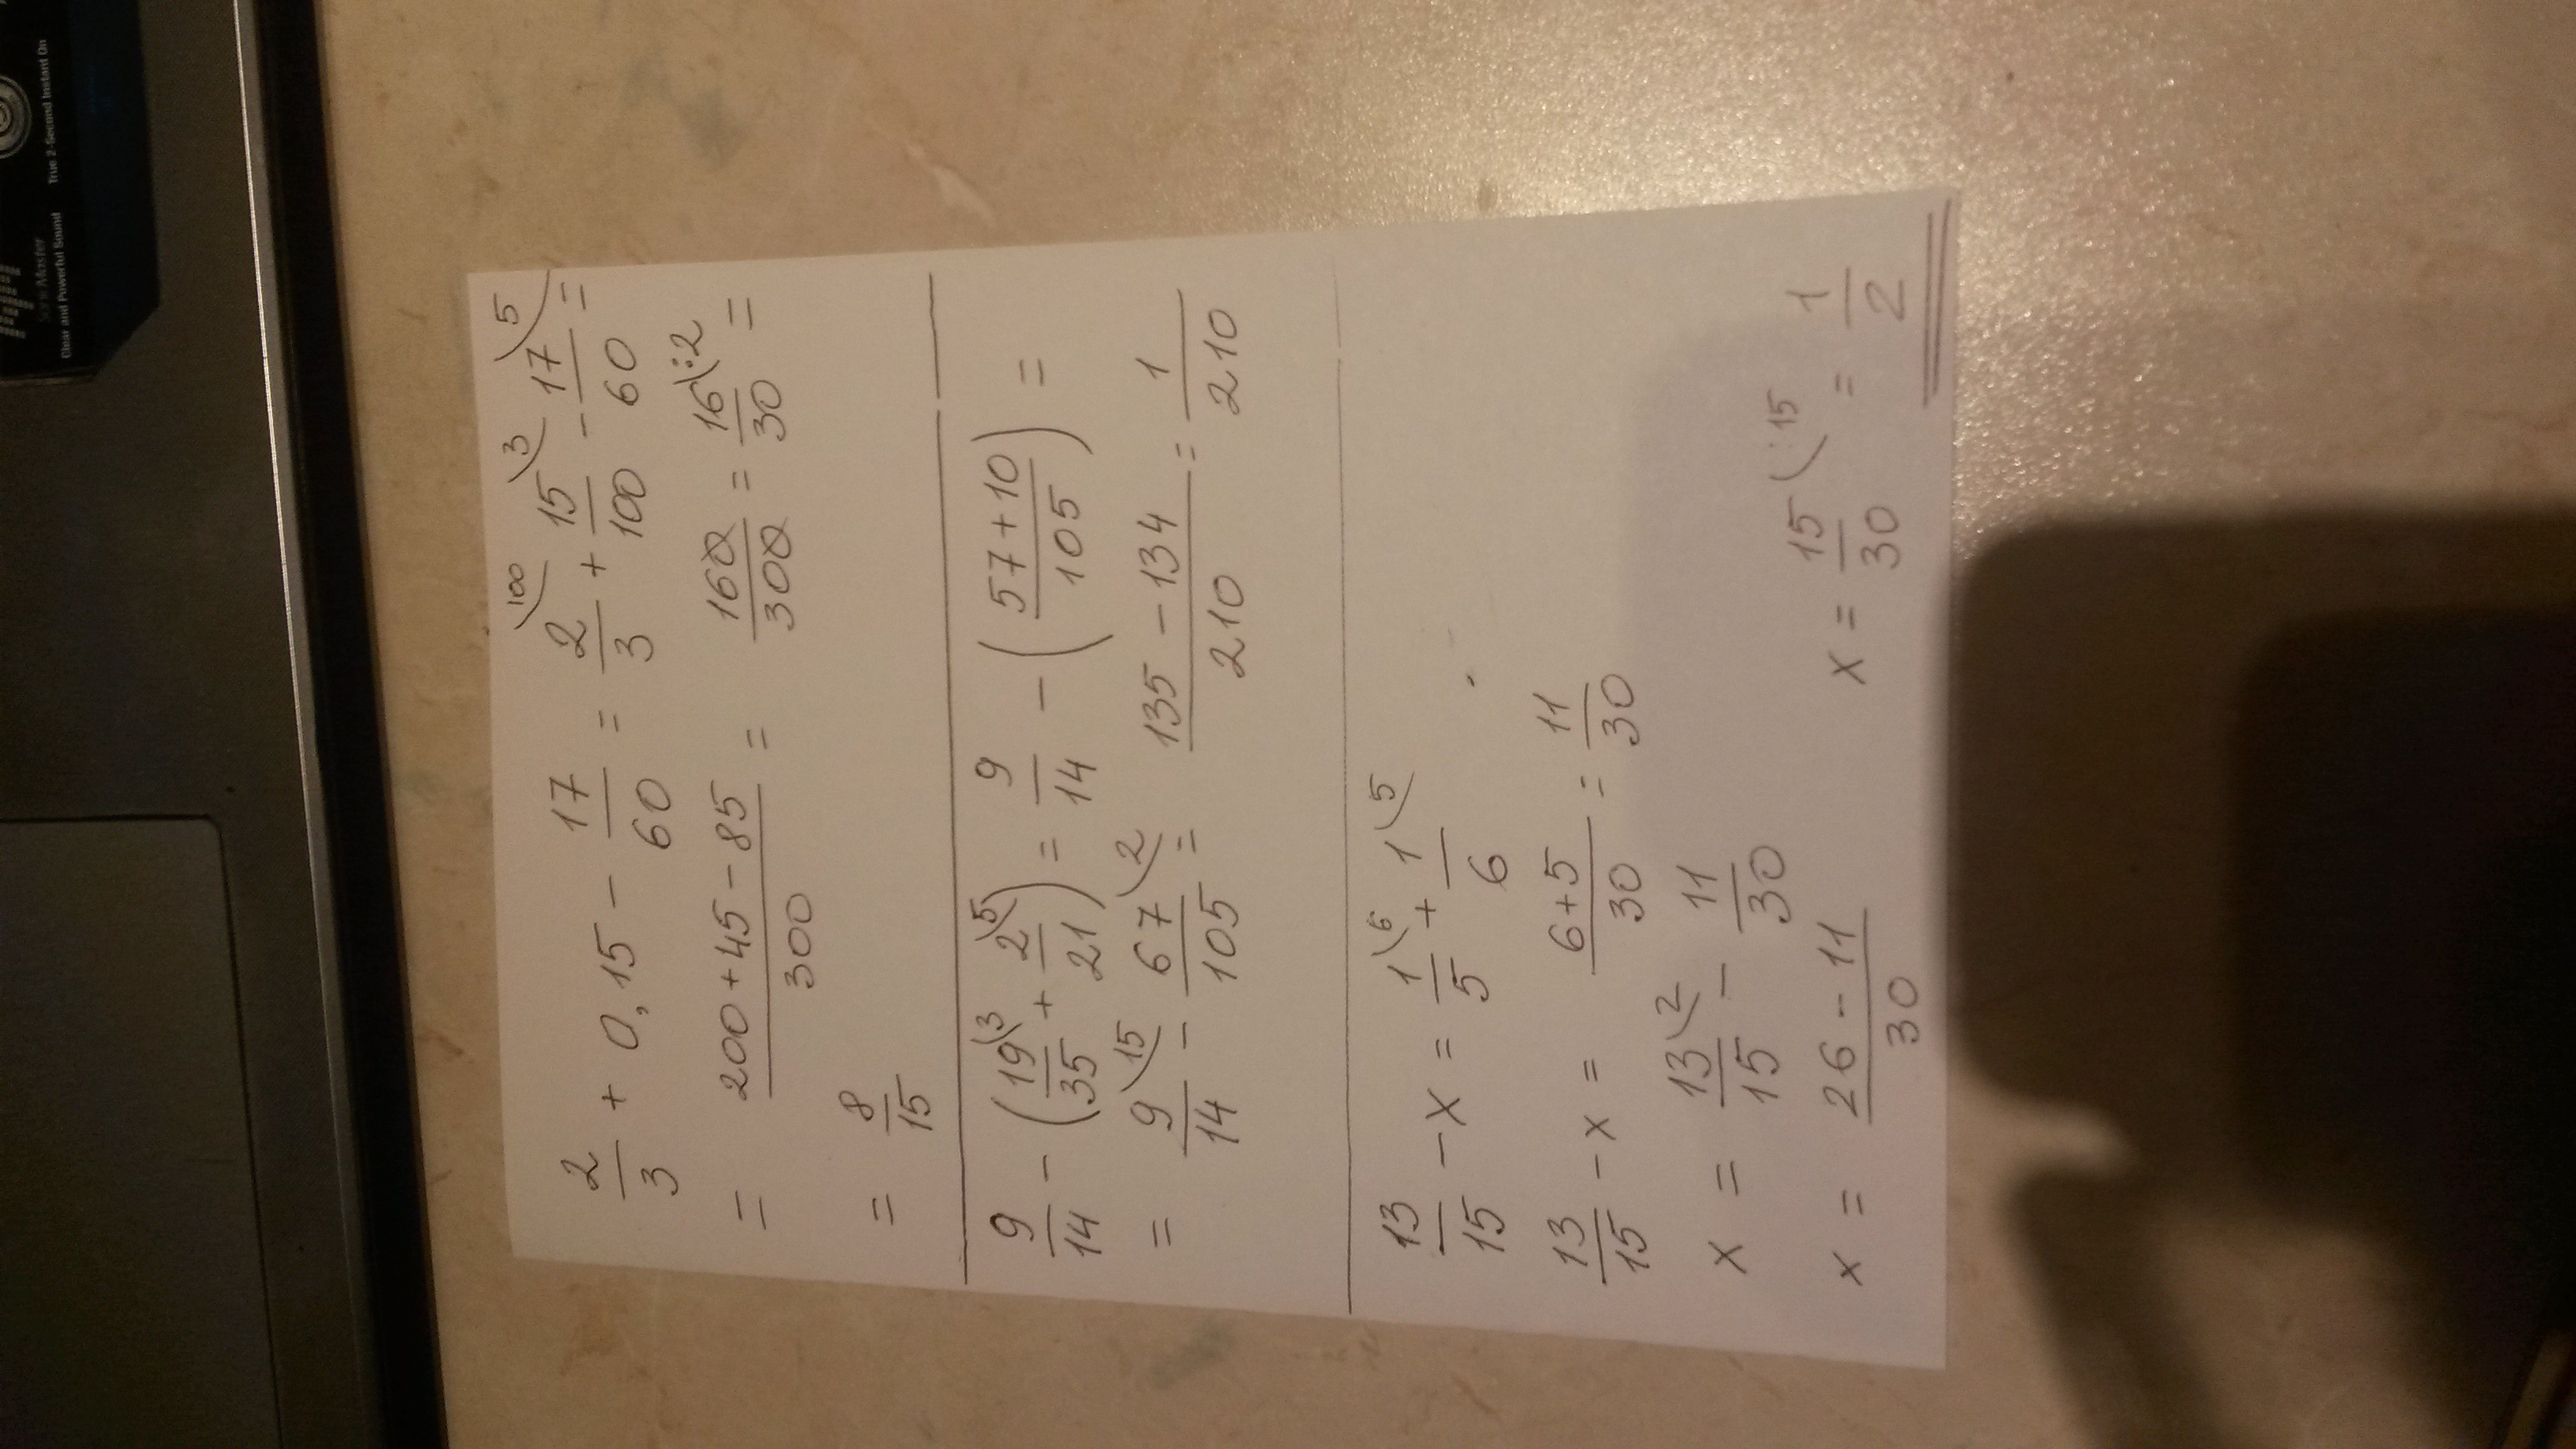 SonicMaster
Clear and Powerful Sound True 2-Second Instant On
2/3 + 0,15 - 17/60 = 2/3 \100 + 15/100 \3 - 17/60 \5 =
= (200+45-85)/300 = 160/300 = 16/30 \:2 =
= 8/15
9/14 - (19/35 \3 + 2/21 \5) = 9/14 - ((57+10)/105) =
= 9/14 \15 - 67/105 \2 = (135-134)/210 = 1/210
13/15 - x = 1/5 \6 + 1/6 \5
13/15 - x = (6+5)/30 = 11/30
x = 13/15 \2 - 11/30
x = (26-11)/30
x = 15/30 (:15 = 1/2